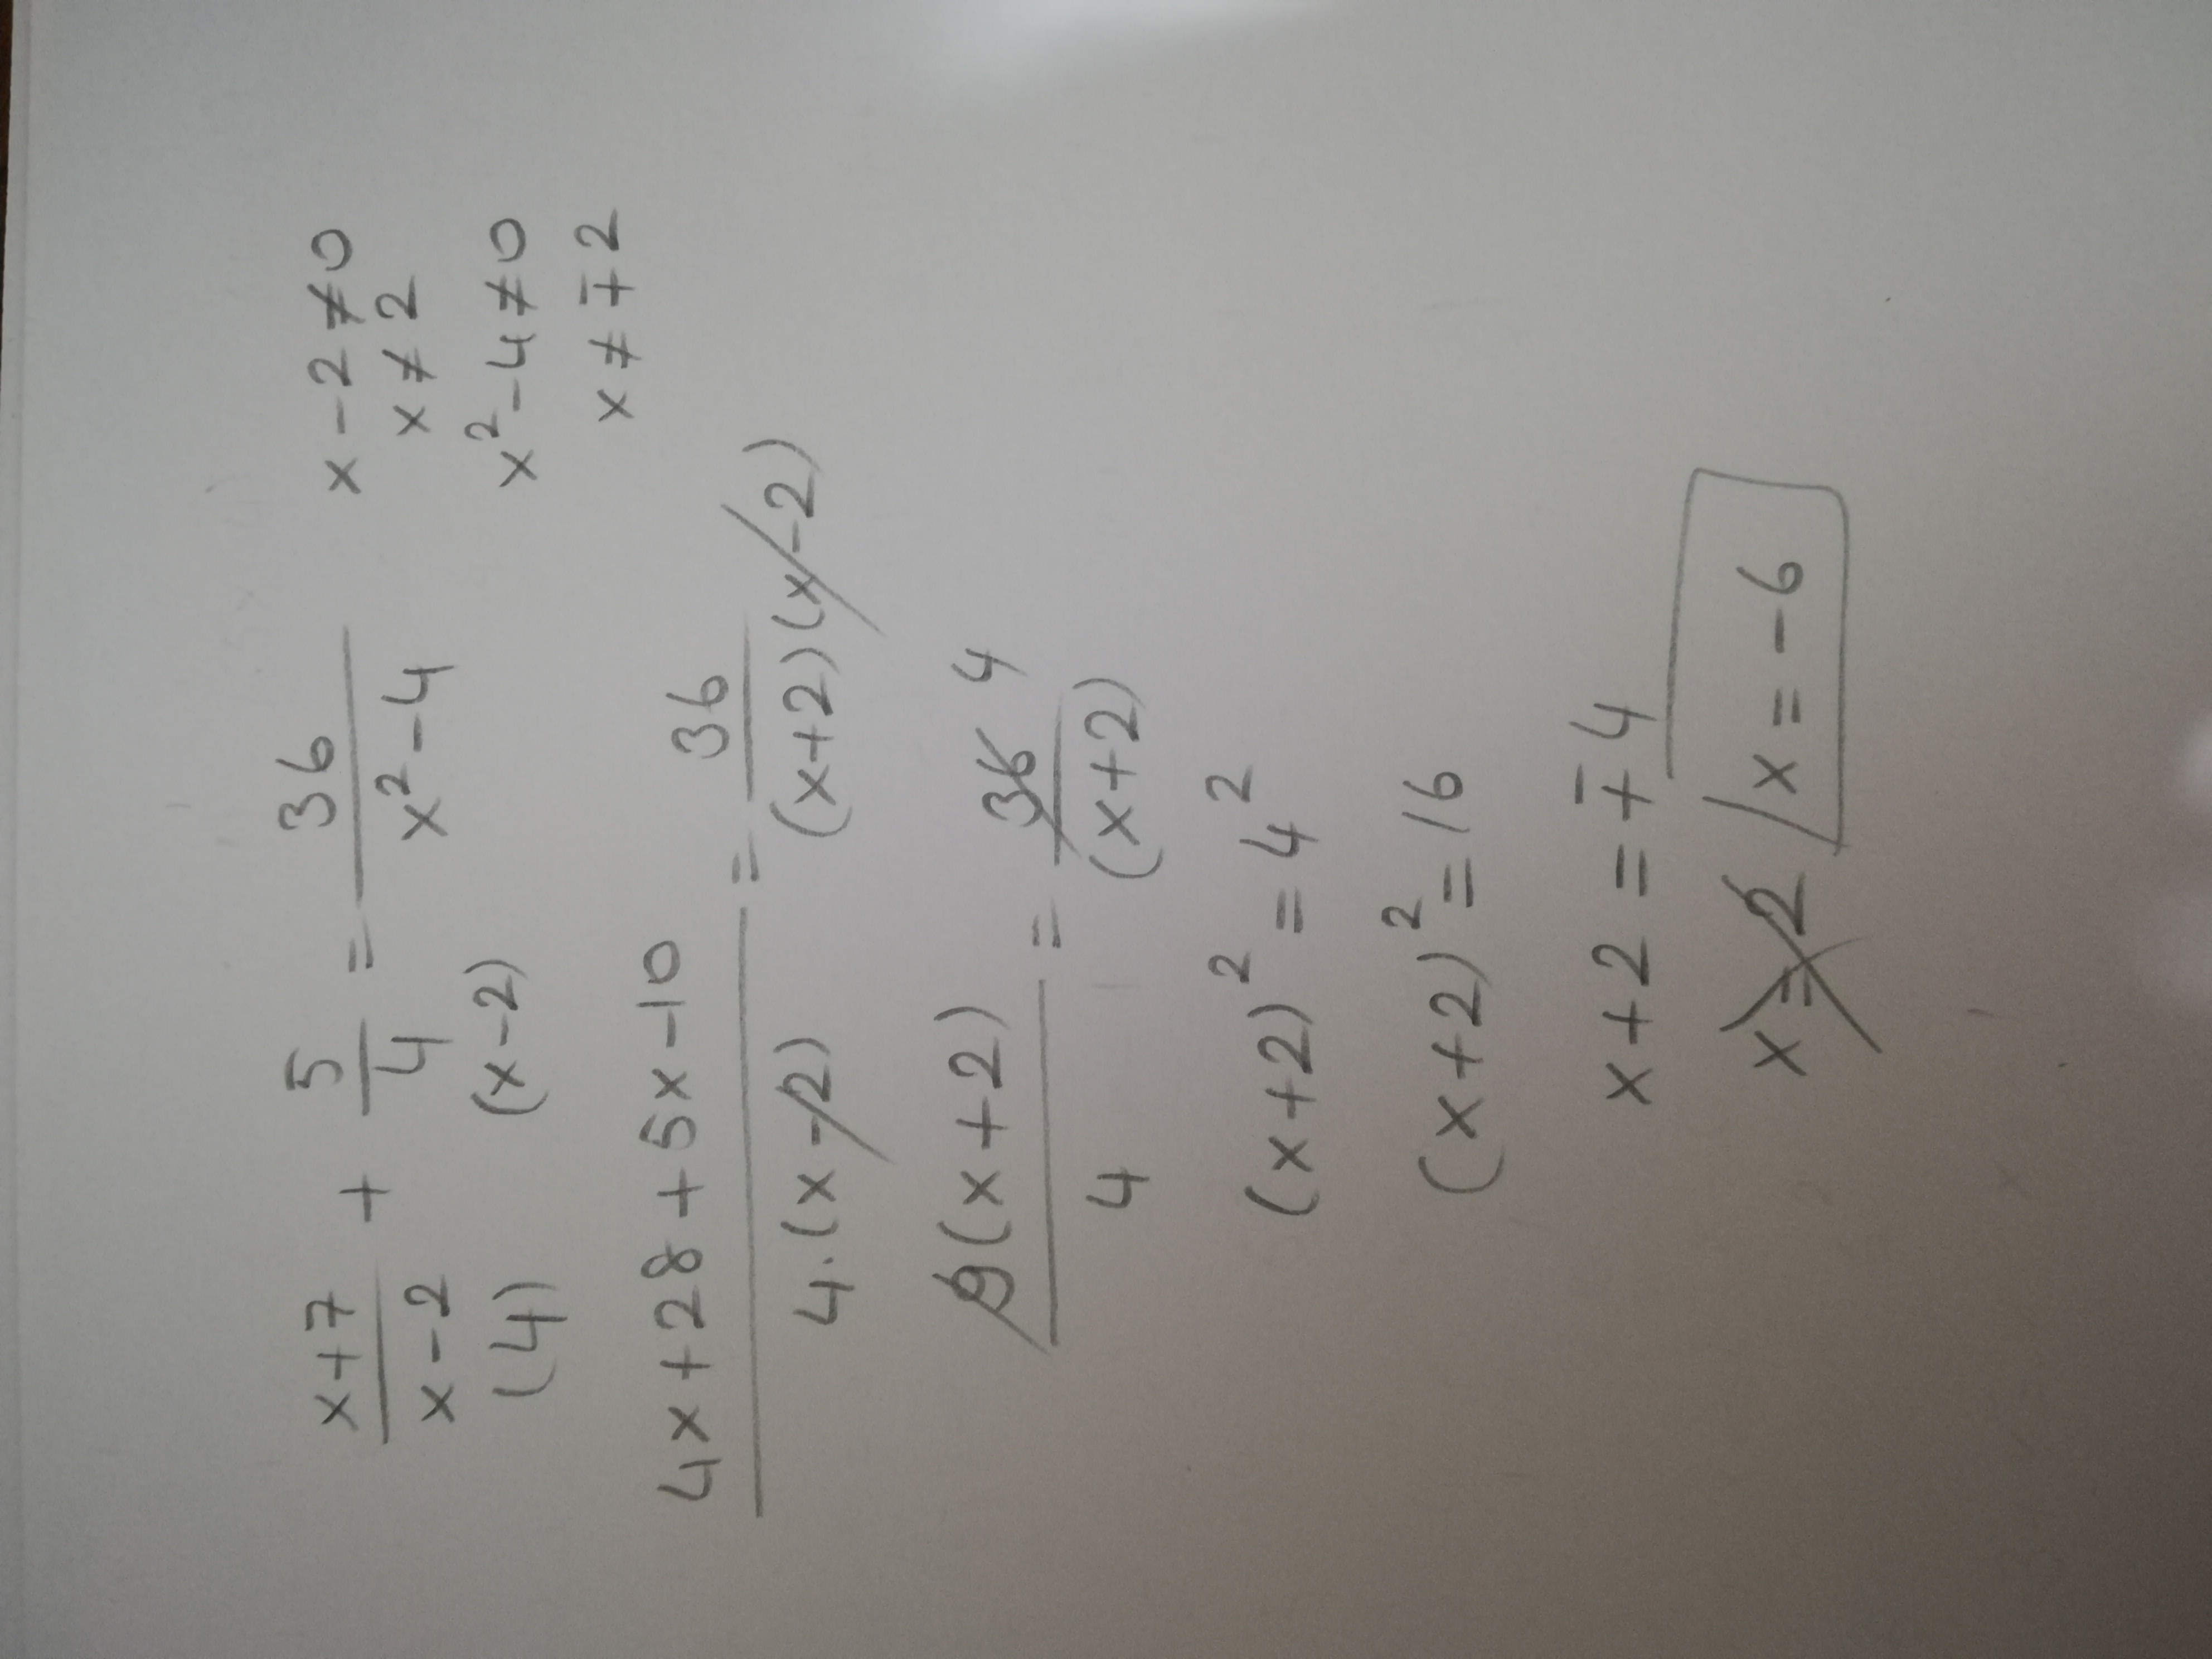 x+7/x-2 + 5/4 = 36/x²-4 x-2≠0
(4) (x-2) x≠2
x²-4≠0
x≠∓2
4x+28+5x-10/4.(x-2) = 36/(x+2)(x-2)
9(x+2)/4 = 36 4/(x+2)
(x+2)² = 4²
(x+2)² = 16
x+2 = ∓4
x=2 / x=-6